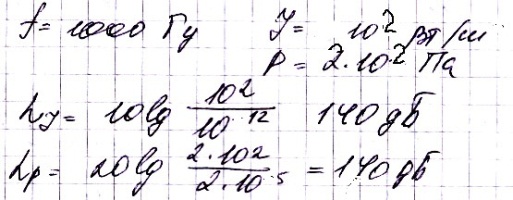 f = 1000 Гц J = 10² Вт/м
P = 2·10² Па
L_J = 10 lg 10²/10⁻¹² 140 дБ
L_P = 20 lg 2·10²/2·10⁻⁵ = 140 дБ